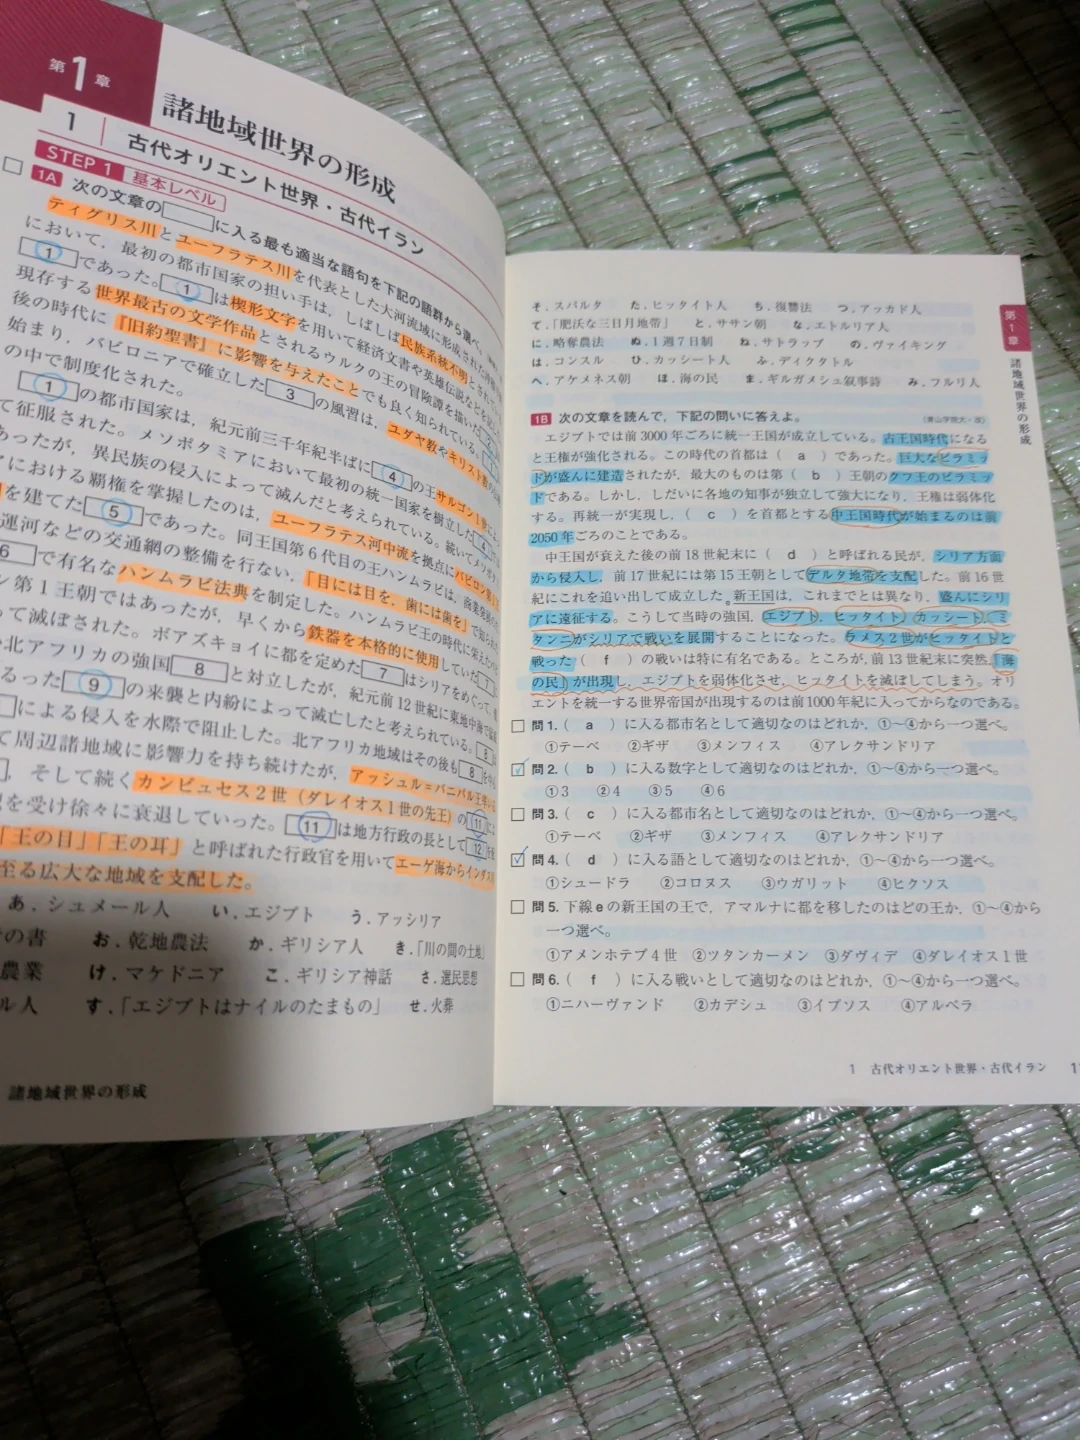 第1章
諸地域世界の形成
1 古代オリエント世界・古代イラン
STEP 1 基本レベル
1A 次の文章の に入る最も適当な語句を下記の語群から選べ。
ティグリス川とユーフラテス川を代表とした大河流域に形成された
において，最初の都市国家の担い手は，しばしば民族系統不明とされ
1 であった。 1 は楔形文字を用いて経済文書や英雄伝説などを
現存する世界最古の文学作品とされるウルクの王の冒険譚を描いた
後の時代に『旧約聖書』に影響を与えたことでも良く知られている。
始まり，バビロニアで確立した 3 の風習は，ユダヤ教やキリスト教
の中で制度化された。
1 の都市国家は，紀元前三千年紀半ばに 4 の王サルゴン1世
て征服された。メソポタミアにおいて最初の統一国家を樹立した 4
あったが，異民族の侵入によって滅んだと考えられている。続いてメソポ
アにおける覇権を掌握したのは，ユーフラテス河中流を拠点にバビロン第1
を建てた 5 であった。同王国第6代目の王ハンムラビは，
運河などの交通網の整備を行ない，「目には目を，歯には歯を」で知られ
6 で有名なハンムラビ法典を制定した。ハンムラビ王の時代に栄えた
ン第1王朝ではあったが，早くから鉄器を本格的に使用していた 7
って滅ぼされた。ボアズキョイに都を定めた 7 はシリアをめぐって，
北アフリカの強国 8 と対立したが，紀元前12世紀に東地中海で
るった 9 の来襲と内紛によって滅亡したと考えられている。 8
による侵入を水際で阻止した。北アフリカ地域はその後も 8
て周辺諸地域に影響力を持ち続けたが，アッシュル＝バニパル王
，そして続くカンビュセス2世（ダレイオス1世の先王）の 11
を受け徐々に衰退していった。 11 は地方行政の長として 12
「王の目」「王の耳」と呼ばれた行政官を用いてエーゲ海からインダス
至る広大な地域を支配した。
あ．シュメール人 い．エジプト う．アッシリア
の書 お．乾地農法 か．ギリシア人 き．「川の間の土地」
農業 け．マケドニア こ．ギリシア神話 さ．選民思想
ル人 す．「エジプトはナイルのたまもの」 せ．火葬
諸地域世界の形成
そ．スパルタ た．ヒッタイト人 ち．復讐法 つ．アッカド人
て．「肥沃な三日月地帯」 と．ササン朝 な．エトルリア人
に．略奪農法 ぬ．1週7日制 ね．サトラップ の．ヴァイキング
は．コンスル ひ．カッシート人 ふ．ディクタトル
へ．アケメネス朝 ほ．海の民 ま．ギルガメシュ叙事詩 み．フルリ人
第1章 諸地域世界の形成
1B 次の文章を読んで，下記の問いに答えよ。 （青山学院大・改）
エジプトでは前3000年ごろに統一王国が成立している。古王国時代になる
と王権が強化される。この時代の首都は（ a ）であった。巨大なピラミッ
ドが盛んに建造されたが，最大のものは第（ b ）王朝のクフ王のピラミッ
ドである。しかし，しだいに各地の知事が独立して強大になり，王権は弱体化
する。再統一が実現し，（ c ）を首都とする中王国時代が始まるのは前
2050年ごろのことである。
中王国が衰えた後の前18世紀末に（ d ）と呼ばれる民が，シリア方面
から侵入し，前17世紀には第15王朝としてデルタ地帯を支配した。前16世
紀にこれを追い出して成立したe新王国は，これまでとは異なり，盛んにシリ
アに遠征する。こうして当時の強国，エジプト，ヒッタイト，カッシート，ミ
タンニがシリアで戦いを展開することになった。ラメス2世がヒッタイトと
戦った（ f ）の戦いは特に有名である。ところが，前13世紀末に突然，「海
の民」が出現し，エジプトを弱体化させ，ヒッタイトを滅ぼしてしまう。オリ
エントを統一する世界帝国が出現するのは前1000年紀に入ってからなのである。
問1．（ a ）に入る都市名として適切なのはどれか，①〜④から一つ選べ。
①テーベ ②ギザ ③メンフィス ④アレクサンドリア
問2．（ b ）に入る数字として適切なのはどれか，①〜④から一つ選べ。
①3 ②4 ③5 ④6
問3．（ c ）に入る都市名として適切なのはどれか，①〜④から一つ選べ。
①テーベ ②ギザ ③メンフィス ④アレクサンドリア
問4．（ d ）に入る語として適切なのはどれか，①〜④から一つ選べ。
①シュードラ ②コロヌス ③ウガリット ④ヒクソス
問5．下線eの新王国の王で，アマルナに都を移したのはどの王か，①〜④から
一つ選べ。
①アメンホテプ4世 ②ツタンカーメン ③ダヴィデ ④ダレイオス1世
問6．（ f ）に入る戦いとして適切なのはどれか，①〜④から一つ選べ。
①ニハーヴァンド ②カデシュ ③イプソス ④アルベラ
1 古代オリエント世界・古代イラン